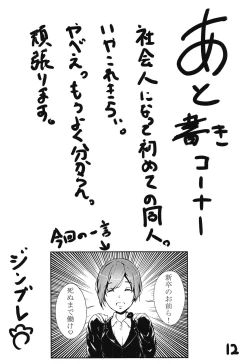 あと書きコーナー
社会人になって初めての同人。
いやこれきちぃ。
やべえ。もうよく分からん。
頑張ります。
今回の一言
新卒のお前ら!
死ぬまで働けな
ジンブレ
12